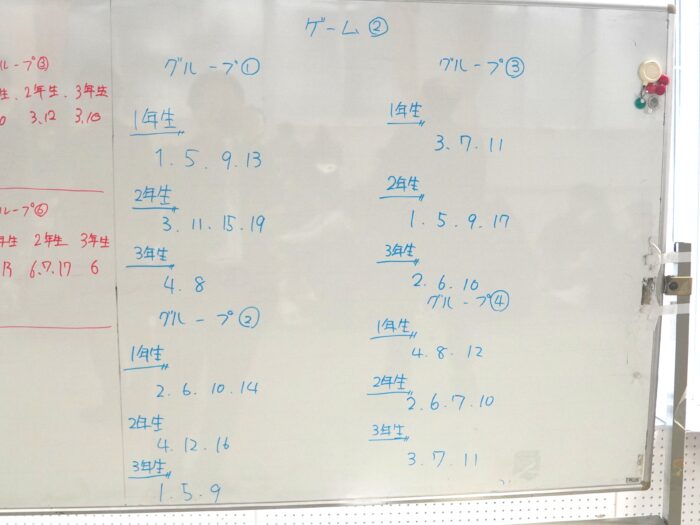 ループ③
生. 2年生. 3年生
3.12 3.10
ループ⑥
年生 2年生 3年生
13 6.7.17 6
ゲーム②
グループ①
1年生
1.5.9.13
2年生
3.11.15.19
3年生
4.8
グループ②
1年生
2.6.10.14
2年生
4.12.16
3年生
1.5.9
グループ③
1年生
3.7.11
2年生
1.5.9.17
3年生
2.6.10
グループ④
1年生
4.8.12
2年生
2.6.7.10
3年生
3.7.11